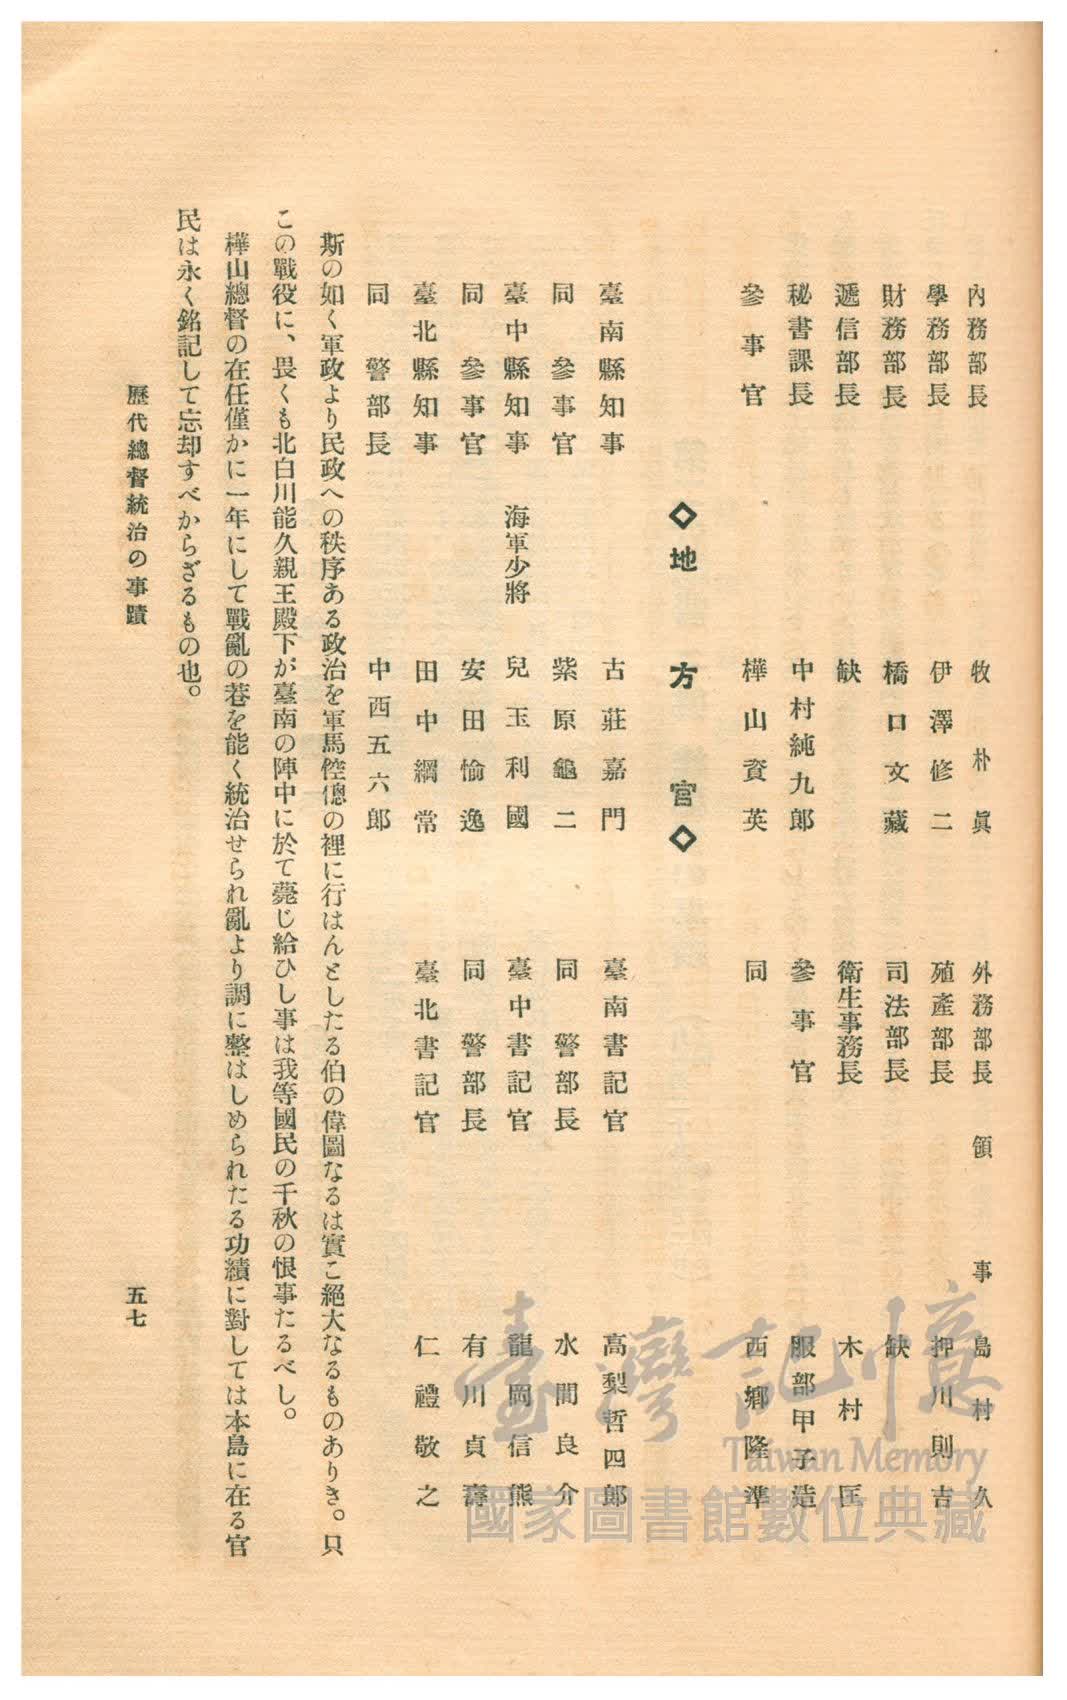 內務部長　牧朴眞　外務部長　領事　島村久
學務部長　伊澤修二　殖產部長　押川則吉
財務部長　橋口文藏　司法部長　缺
遞信部長　缺　衛生事務長　木村匡
秘書課長　中村純九郎　參事官　服部甲子造
參事官　樺山資英　同　西鄕隆準
◇地方官◇
臺南縣知事　古莊嘉門　臺南書記官　高梨哲四郎
同參事官　紫原龜二　同警部長　水間良介
臺中縣知事　海軍少將　兒玉利國　臺中書記官　龍岡信熊
同參事官　安田愉逸　同警部長　有川貞壽
臺北縣知事　田中綱常　臺北書記官　仁禮敬之
同警部長　中西五六郎
斯の如く軍政より民政への秩序ある政治を軍馬倥偬の裡に行はんとしたる伯の偉圖なるは實こ絕大なるものありき。只
この戰役に、畏くも北白川能久親王殿下が臺南の陣中に於て薨じ給ひし事は我等國民の千秋の恨事たるべし。
樺山總督の在任僅かに一年にして戰亂の巷を能く統治せられ亂より調に整はしめられたる功績に對しては本島に在る官
民は永く銘記して忘却すべからざるもの也。
歷代總督統治の事蹟
五七
臺灣記憶
Taiwan Memory
國家圖書館數位典藏